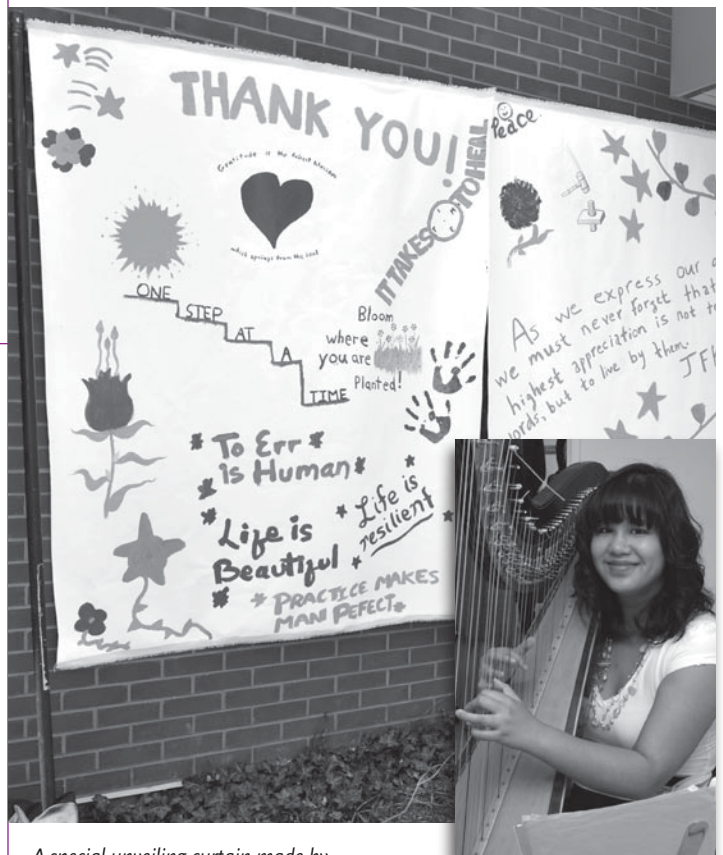 THANK YOU!
Gratitude is the fairest blossom
which springs from the soul
IT TAKES TO HEAL
ONE
STEP
AT
A
TIME
Bloom
where
you are
Planted!
To Err
is Human
Life is
Beautiful
Life is
resilient
PRACTICE MAKES
MANI PEFECT
Peace
As we express our
we must never forget that
highest appreciation is not
words, but to live by them.
JF
A special unveiling curtain made by